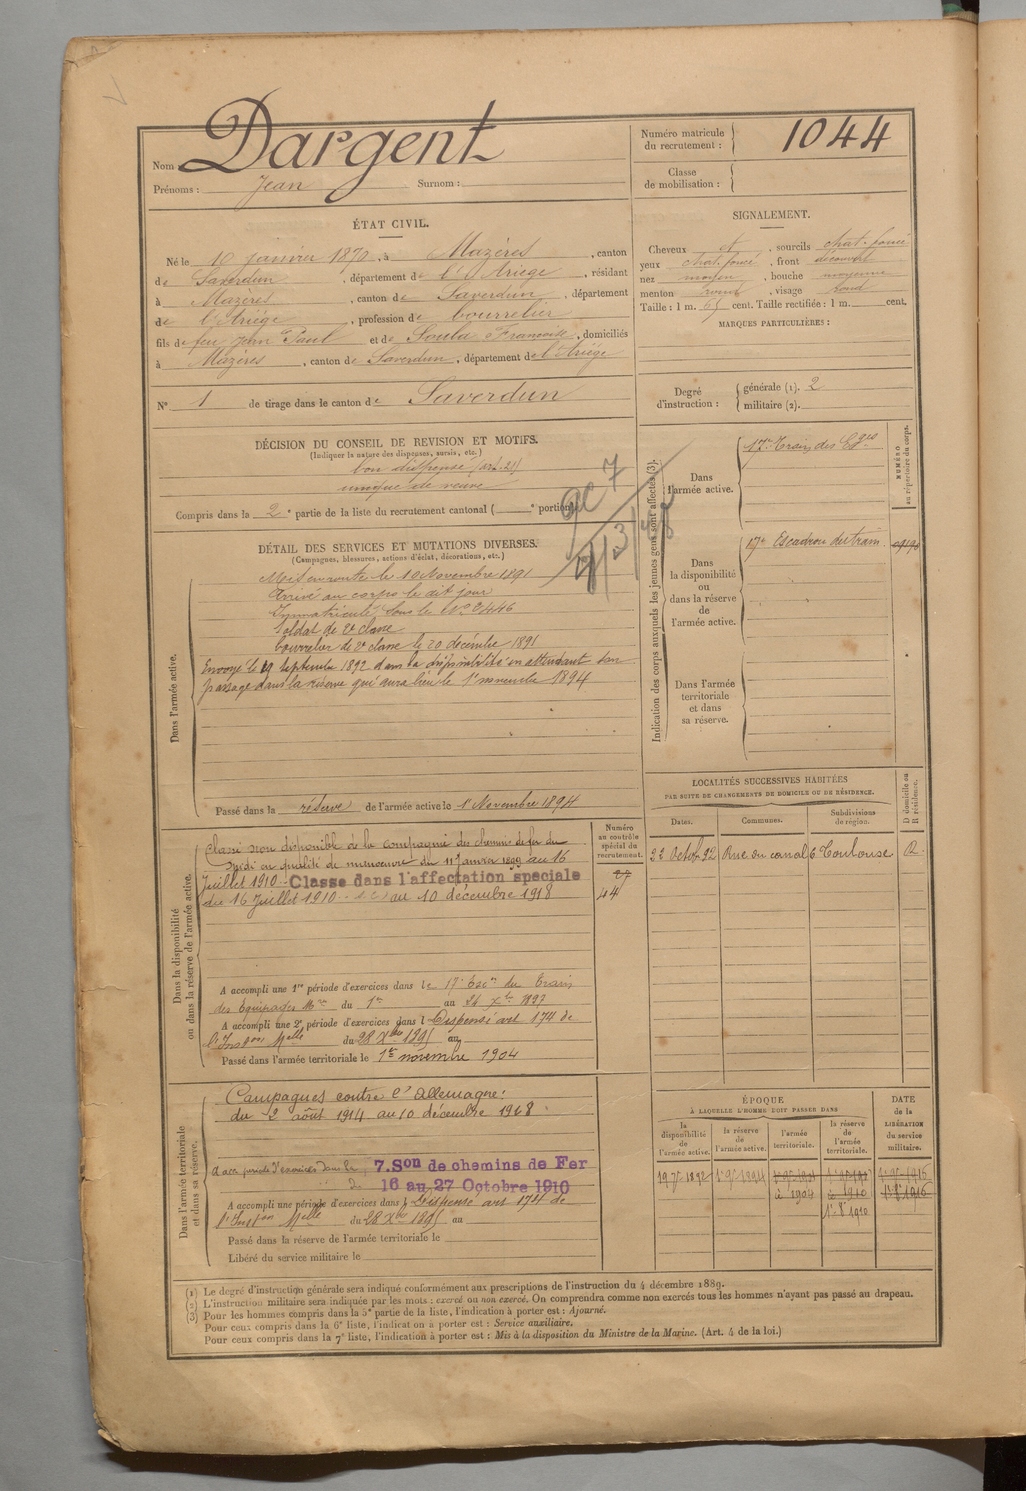 Nom Dargent
Prénoms : Jean Surnom :
Numéro matricule du recrutement : 1044
Classe de mobilisation :
ÉTAT CIVIL.
Né le 10 janvier 1870, à Mazères, canton
de Saverdun, département de l'Ariège, résidant
à Mazères, canton de Saverdun, département
de l'Ariège, profession de bourrelier
fils de feu Jean Paul et de Soula Françoise, domiciliés
à Mazères, canton de Saverdun, département de l'Ariège
N° 1 de tirage dans le canton de Saverdun
SIGNALEMENT.
Cheveux et, sourcils chat. foncé
yeux chat. foncé, front découvert
nez moyen, bouche moyenne
menton rond, visage rond
Taille : 1 m. 65 cent. Taille rectifiée : 1 m. cent.
MARQUES PARTICULIÈRES :
Degré d'instruction : générale (1). 2
militaire (2).
DÉCISION DU CONSEIL DE REVISION ET MOTIFS.
(Indiquer la nature des dispenses, sursis, etc.)
bon dispensé (art. 21)
unique de veuve
Compris dans la 2e partie de la liste du recrutement cantonal ( e portion
DÉTAIL DES SERVICES ET MUTATIONS DIVERSES.
(Campagnes, blessures, actions d'éclat, décorations, etc.)
Dans l'armée active.
Mis en route le 10 Novembre 1891
Arrivé au corps le dit jour
Immatriculé sous le N° 2446
Soldat de 2e classe
bourrelier de 2e classe le 20 décembre 1891
Envoyé le 19 septembre 1892 dans la disponibilité en attendant son
passage dans la réserve qui aura lieu le 1er novembre 1894
Passé dans la réserve de l'armée active le 1er Novembre 1894
Indication des corps auxquels les jeunes gens sont affectés (3).
NUMÉRO au répertoire du corps.
Dans l'armée active.
17e Train des Eges
Dans la disponibilité ou dans la réserve de l'armée active.
17e Escadron du train
Dans l'armée territoriale et dans sa réserve.
Dans la disponibilité ou dans la réserve de l'armée active.
Numéro au contrôle spécial du recrutement.
Classé non disponible de la compagnie des chemins de fer du
Midi en qualité de manœuvre du 11 Janvier 1899 au 16
Juillet 1910 Classe dans l'affectation speciale
du 16 Juillet 1910 au 10 décembre 1918
44
A accompli une 1re période d'exercices dans le 17e Escon du Train
des Equipages Mres du 1er au 26 Xbre 1897
A accompli une 2e période d'exercices dans l Dispensé art 174 de
l'Inston Melle du 28 Xbre 1895 au
Passé dans l'armée territoriale le 1er novembre 1904
LOCALITÉS SUCCESSIVES HABITÉES
PAR SUITE DE CHANGEMENTS DE DOMICILE OU DE RÉSIDENCE.
Dates. Communes. Subdivisions de région. D domicile ou R résidence.
Rue du canal 6 Toulouse R
Dans l'armée territoriale et dans sa réserve.
Campagnes contre l'Allemagne :
du 2 août 1914 au 10 décembre 1918
A acc. période d'exercices dans la 7.Son de chemins de Fer
du 16 au 27 Octobre 1910
A accompli une période d'exercices dans l Dispensé art 174 de
l'Inston Melle du 28 Xbre 1895 au
Passé dans la réserve de l'armée territoriale le
Libéré du service militaire le
ÉPOQUE
À LAQUELLE L'HOMME DOIT PASSER DANS
la disponibilité de l'armée active. la réserve de l'armée active. l'armée territoriale. la réserve de l'armée territoriale.
DATE de la LIBÉRATION du service militaire.
(1) Le degré d'instruction générale sera indiqué conformément aux prescriptions de l'instruction du 4 décembre 1889.
(2) L'instruction militaire sera indiquée par les mots : exercé ou non exercé. On comprendra comme non exercés tous les hommes n'ayant pas passé au drapeau.
(3) Pour les hommes compris dans la 5e partie de la liste, l'indication à porter est : Ajourné.
Pour ceux compris dans la 6e liste, l'indication à porter est : Service auxiliaire.
Pour ceux compris dans la 7e liste, l'indication à porter est : Mis à la disposition du Ministre de la Marine. (Art. 4 de la loi.)